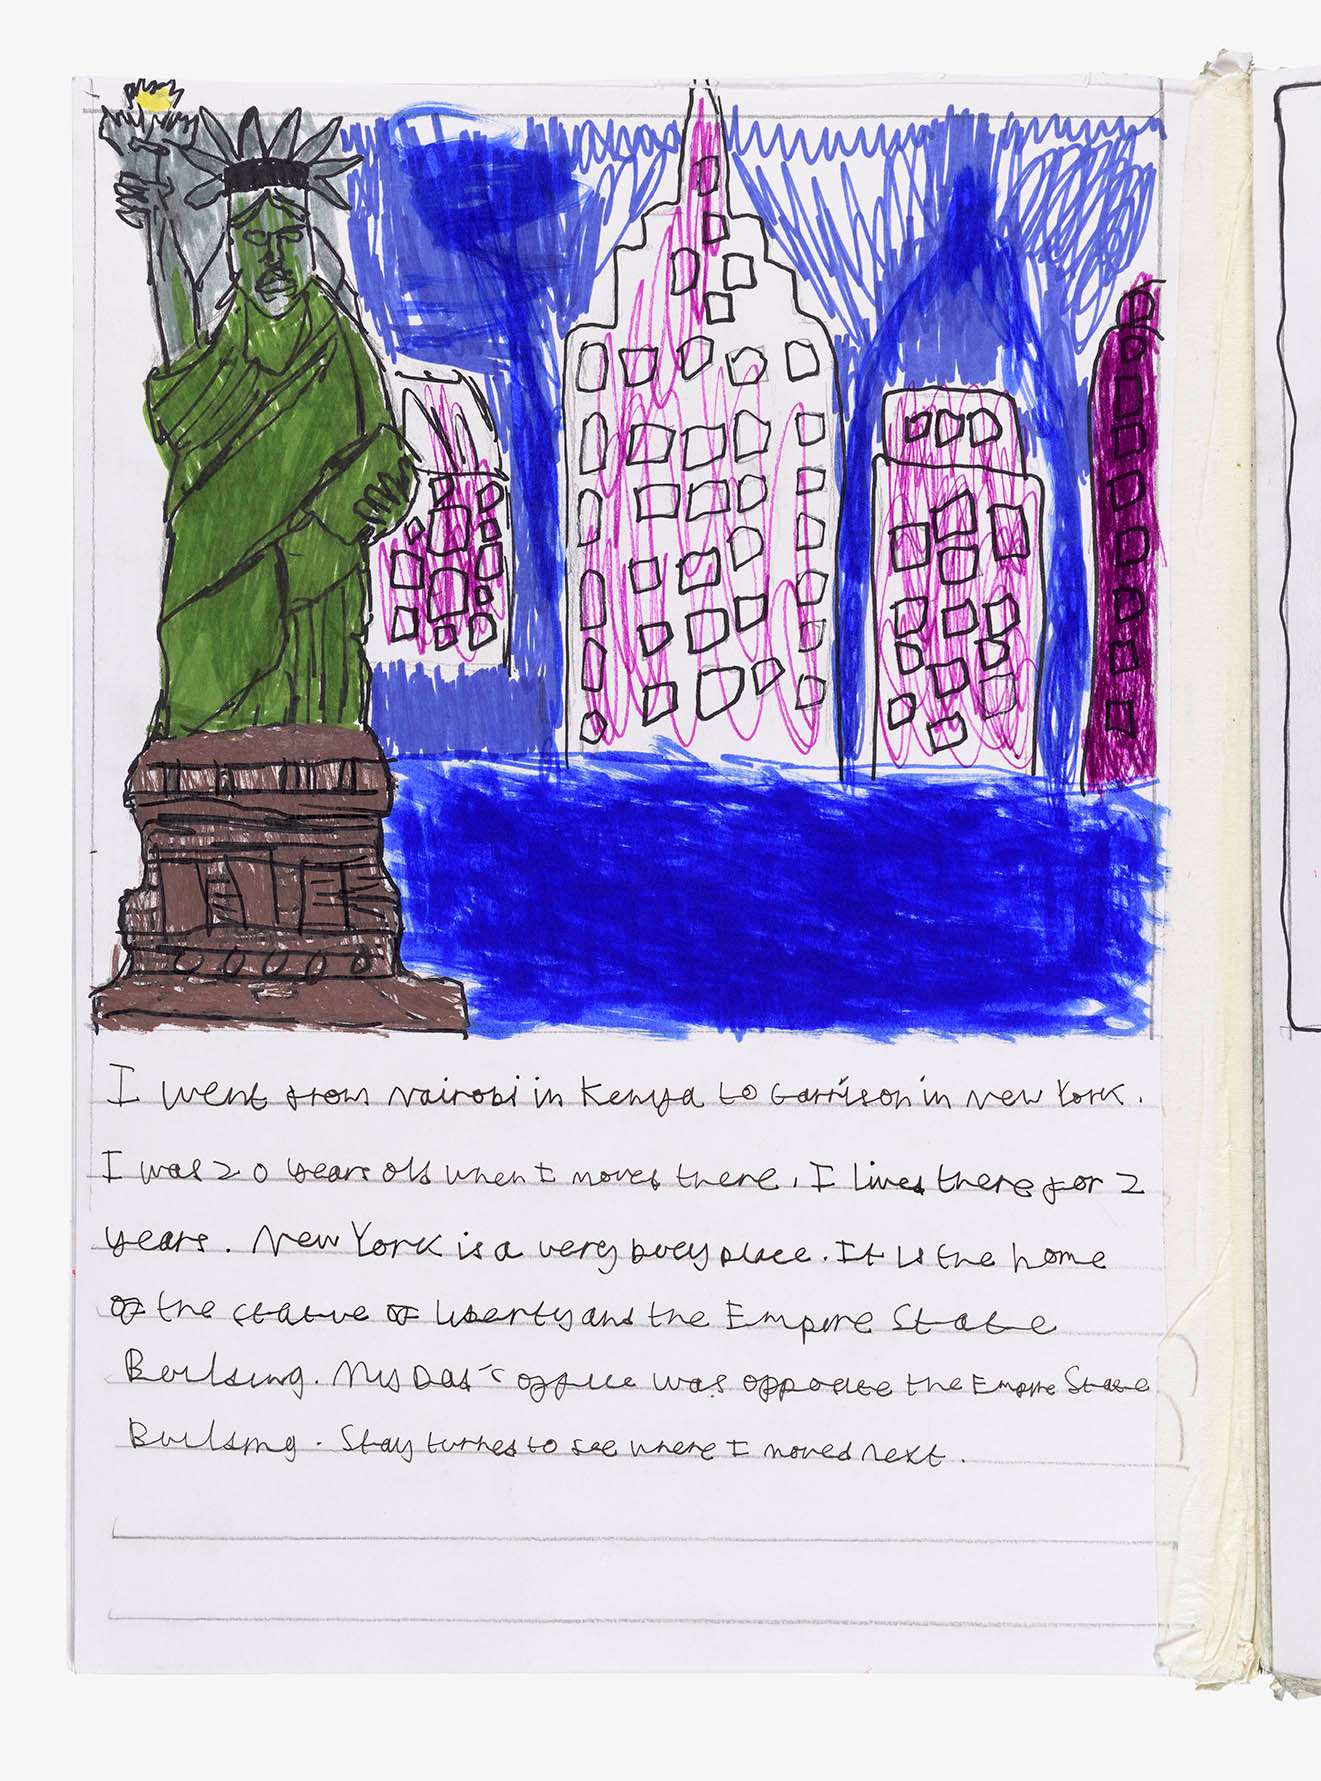 I went from Nairobi in Kenya to Garrison in New York.
I was 20 years old when I moved there. I lived there for 2
years. New York is a very busy place. It is the home
of the statue of liberty and the Empire State
Building. My Dad's office was opposite the Empire State
Building. Stay turned to see where I moved next.